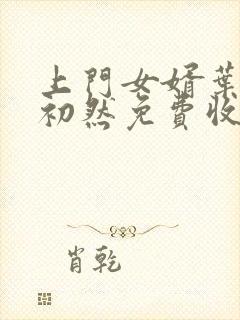 上門女婿葉
初然免費收
肖乾